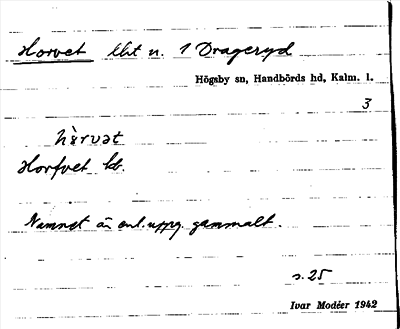 Horvet lht n. 1 Drageryd
Högsby sn, Handbörds hd, Kalm. l.
3
Horfvet kb.
Namnet är enl. uppg. gammalt.
s. 25
Ivar Modéer 1942